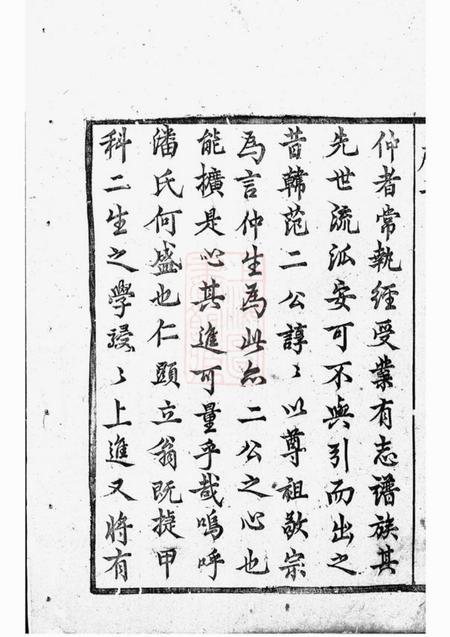 仲者常執經受業有志譜族其
先世流派安可不與引而出之
昔韓范二公諄〻以尊祖敬宗
為言仲生為此亦二公之心也
能擴是心其進可量乎哉嗚呼
潘氏何盛也仁顕立翁既掟甲
科二生之學駸〻上進又將有